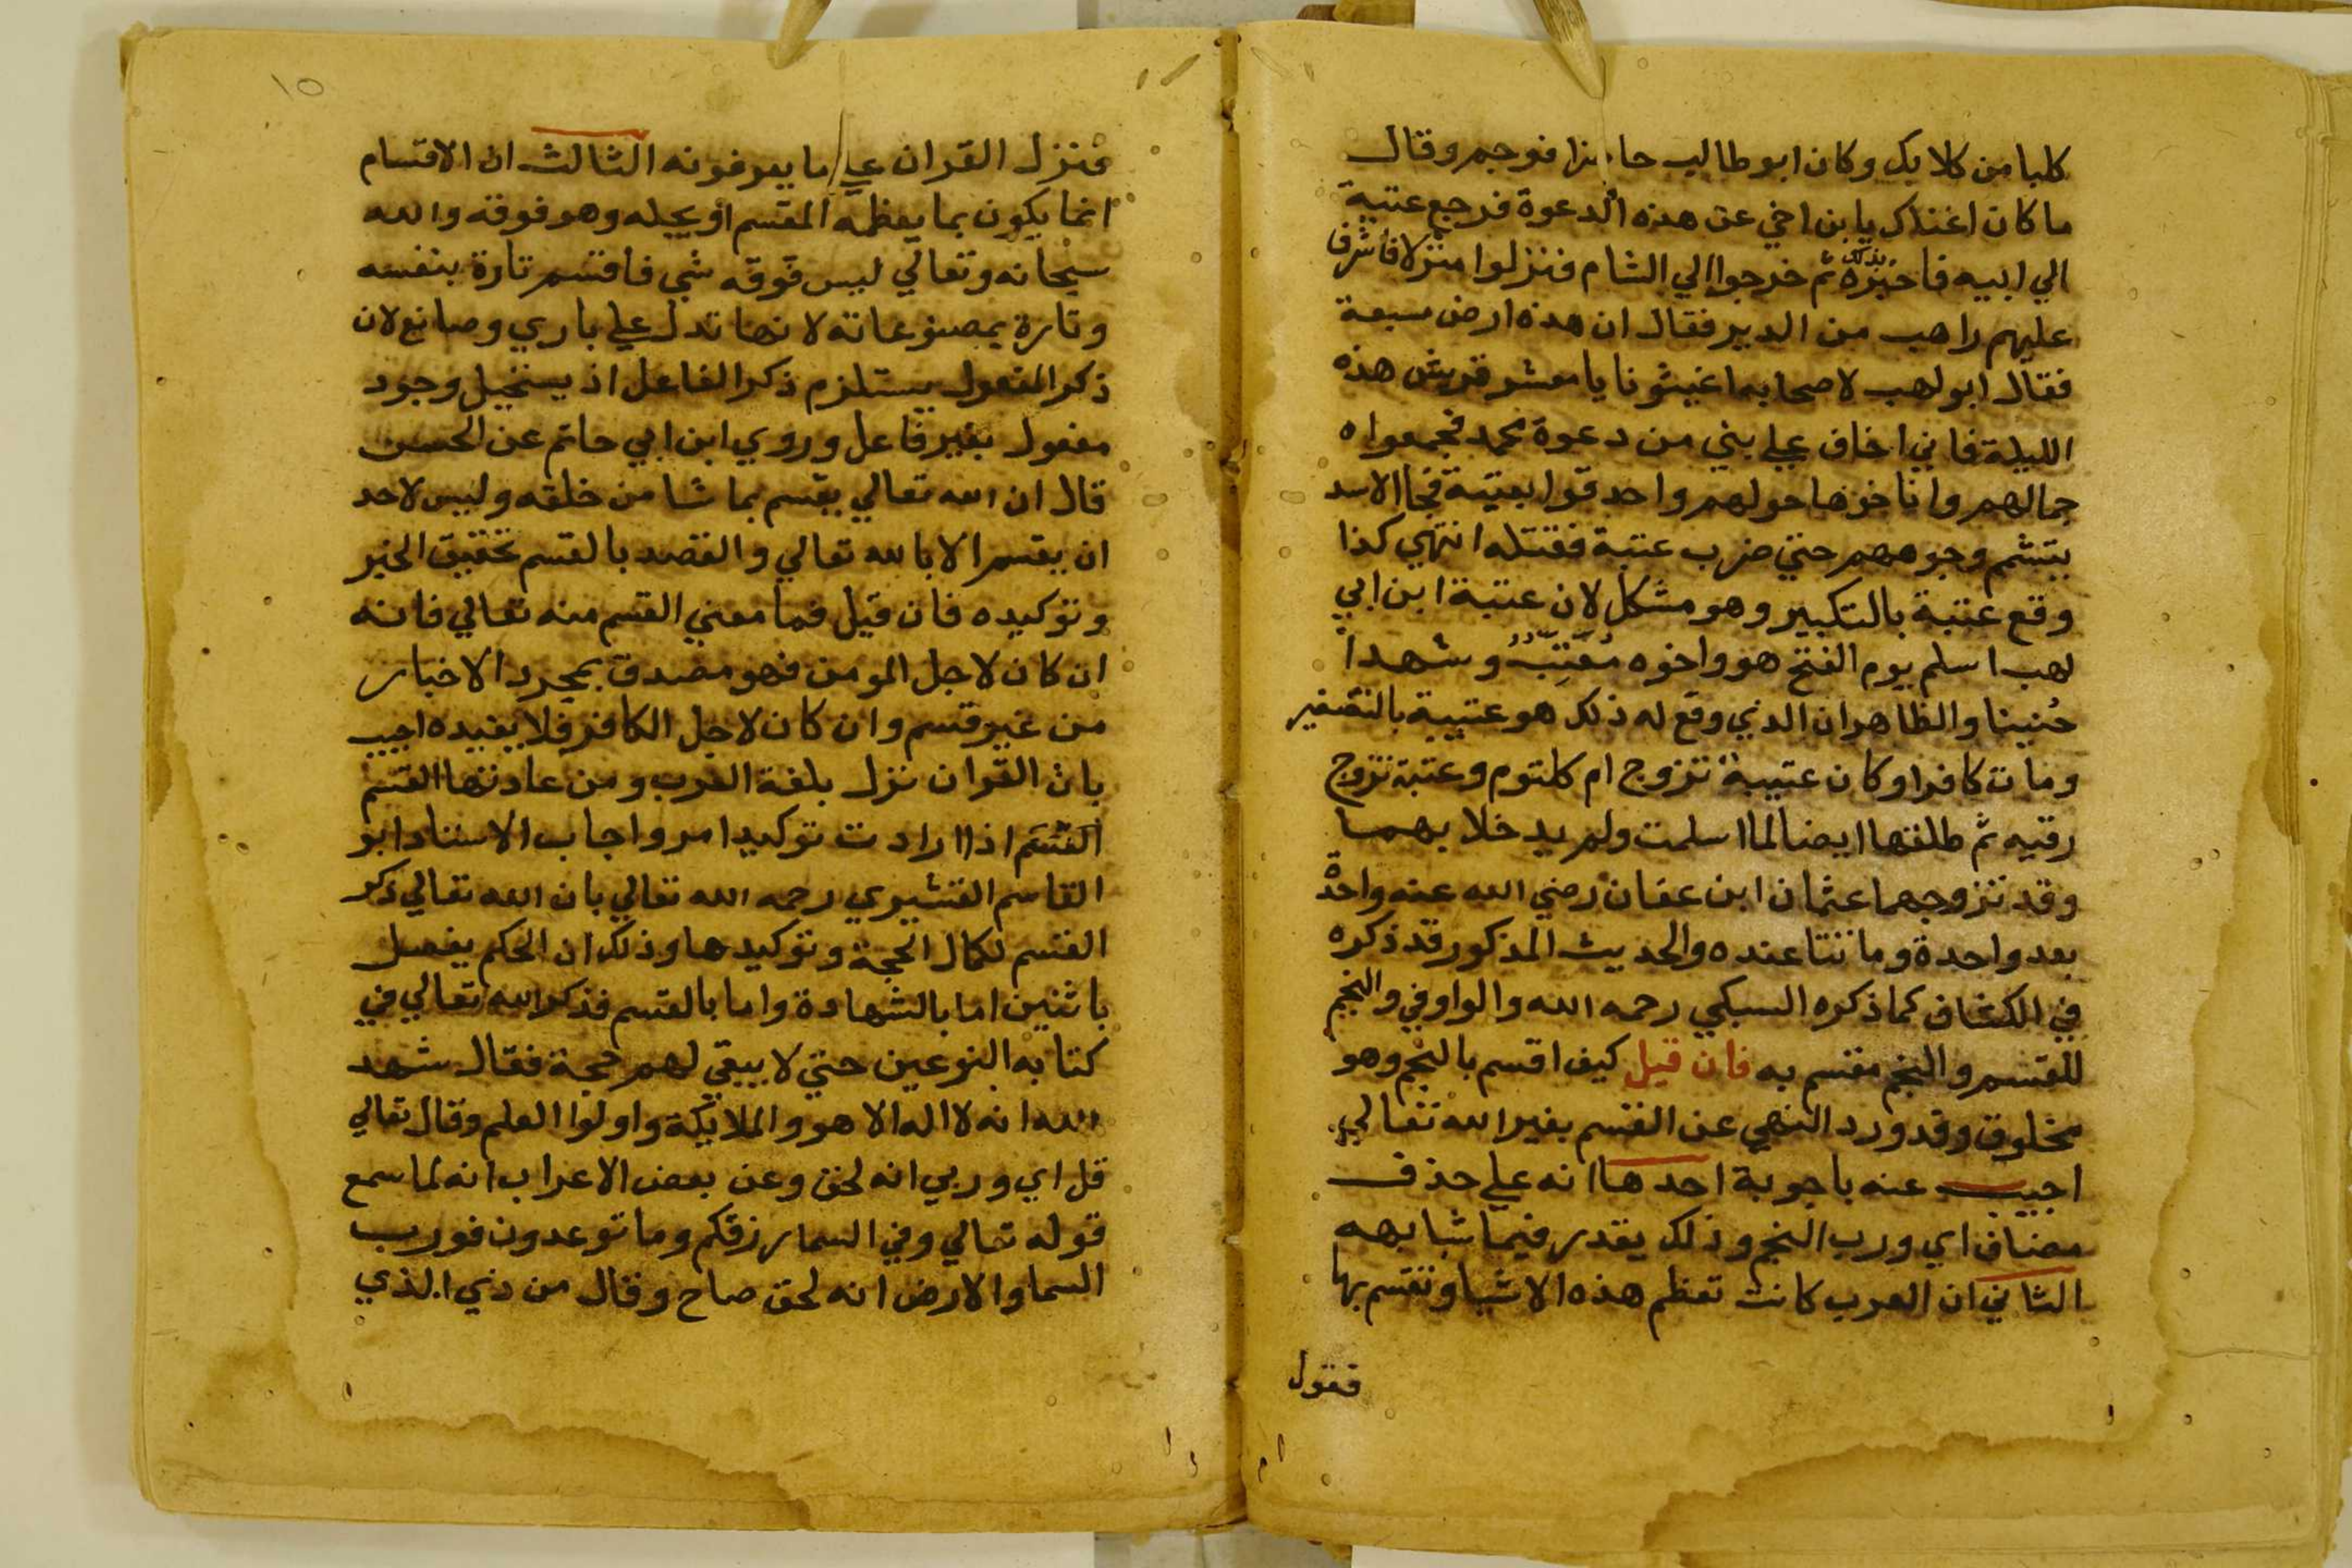 كلبا من كلابك وكان ابو طالب حاضرا فوجم وقال
ما كان اغناك يا بن اخي عن هذه الدعوة فرجع عتبة
الي ابيه فاخبره بذلك ثم خرجوا الي الشام فنزلوا منزلا فاشرف
عليهم راهب من الدير فقال ان هذه ارض مسبعة
فقال ابو لهب لاصحابه اغيثونا يا معشر قريش هذه
الليلة فاني اخاف علي بني من دعوة محمد فجمعوا
جمالهم واناخوها حولهم واحدقوا بعتبة فجا الاسد
يتشمم وجوههم حتي ضرب عتبة فقتله انتهي كذا
وقع عتبة بالتكبير وهو مشكل لان عتبة ابن ابي
لهب اسلم يوم الفتح هو واخوه مُعَتِّبٌ وشهدا
حُنينا والظاهر ان الذي وقع له ذلك هو عتيبة بالتصغير
ومات كافرا وكان عتيبة تزوج ام كلثوم وعتبة تزوج
رقيه ثم طلقها ايضا لما اسلمت ولم يدخلا بهما
وقد تزوجهما عثمان ابن عفان رضي الله عنه واحدة
بعد واحدة وماتتا عنده والحديث المذكور قد ذكره
في الكشاف كما ذكره السبكي رحمه الله والواو في والنجم
للقسم والنجم مقسم به فان قيل كيف اقسم بالنجم وهو
مخلوق وقد ورد النهي عن القسم بغير الله تعالي
اجيب عنه باجوبة احدها انه علي حذف
مضاف اي ورب النجم وذلك يقدر فيما شابهه
الثاني ان العرب كانت تعظم هذه الاشيا وتقسم بها
فنزل القران علي ما يعرفونه الثالث ان الاقسام
انما يكون بما يعظمه المقسم او يجله وهو فوقه والله
سبحانه وتعالي ليس فوقه شي فاقسم تارة بنفسه
وتارة بمصنوعاته لانها تدل علي باري وصانع لان
ذكر المفعول يستلزم ذكر الفاعل اذ يستحيل وجود
مفعول بغير فاعل وروي ابن ابي حاتم عن الحسن
قال ان الله تعالي يقسم بما شا من خلقه وليس لاحد
ان يقسم الا بالله تعالي والقصد بالقسم تحقيق الخبر
وتوكيده فان قيل فما معني القسم منه تعالي فانه
ان كان لاجل المومن فهو مصدق بمجرد الاخبار
من غير قسم وان كان لاجل الكافر فلا يفيده اجيب
بان القران نزل بلغة العرب ومن عادتها القسم
القسم اذا ارادت توكيد امر واجاب الاستاد ابو
القاسم القشيري رحمه الله تعالي بان الله تعالي ذكر
القسم لكمال الحجة وتوكيدها وذلك ان الحكم يفصل
باثنين اما بالشهادة واما بالقسم فذكر الله تعالي في
كتابه النوعين حتي لا يبقي لهم حجة فقال شهد
الله انه لا اله الا هو والملايكة واولوا العلم وقال تعالي
قل اي وربي انه لحق وعن بعض الاعراب انه لما سمع
قوله تعالي وفي السما رزقكم وما توعدون فورب
السما والارض انه لحق صاح وقال من ذي الذي
١٥